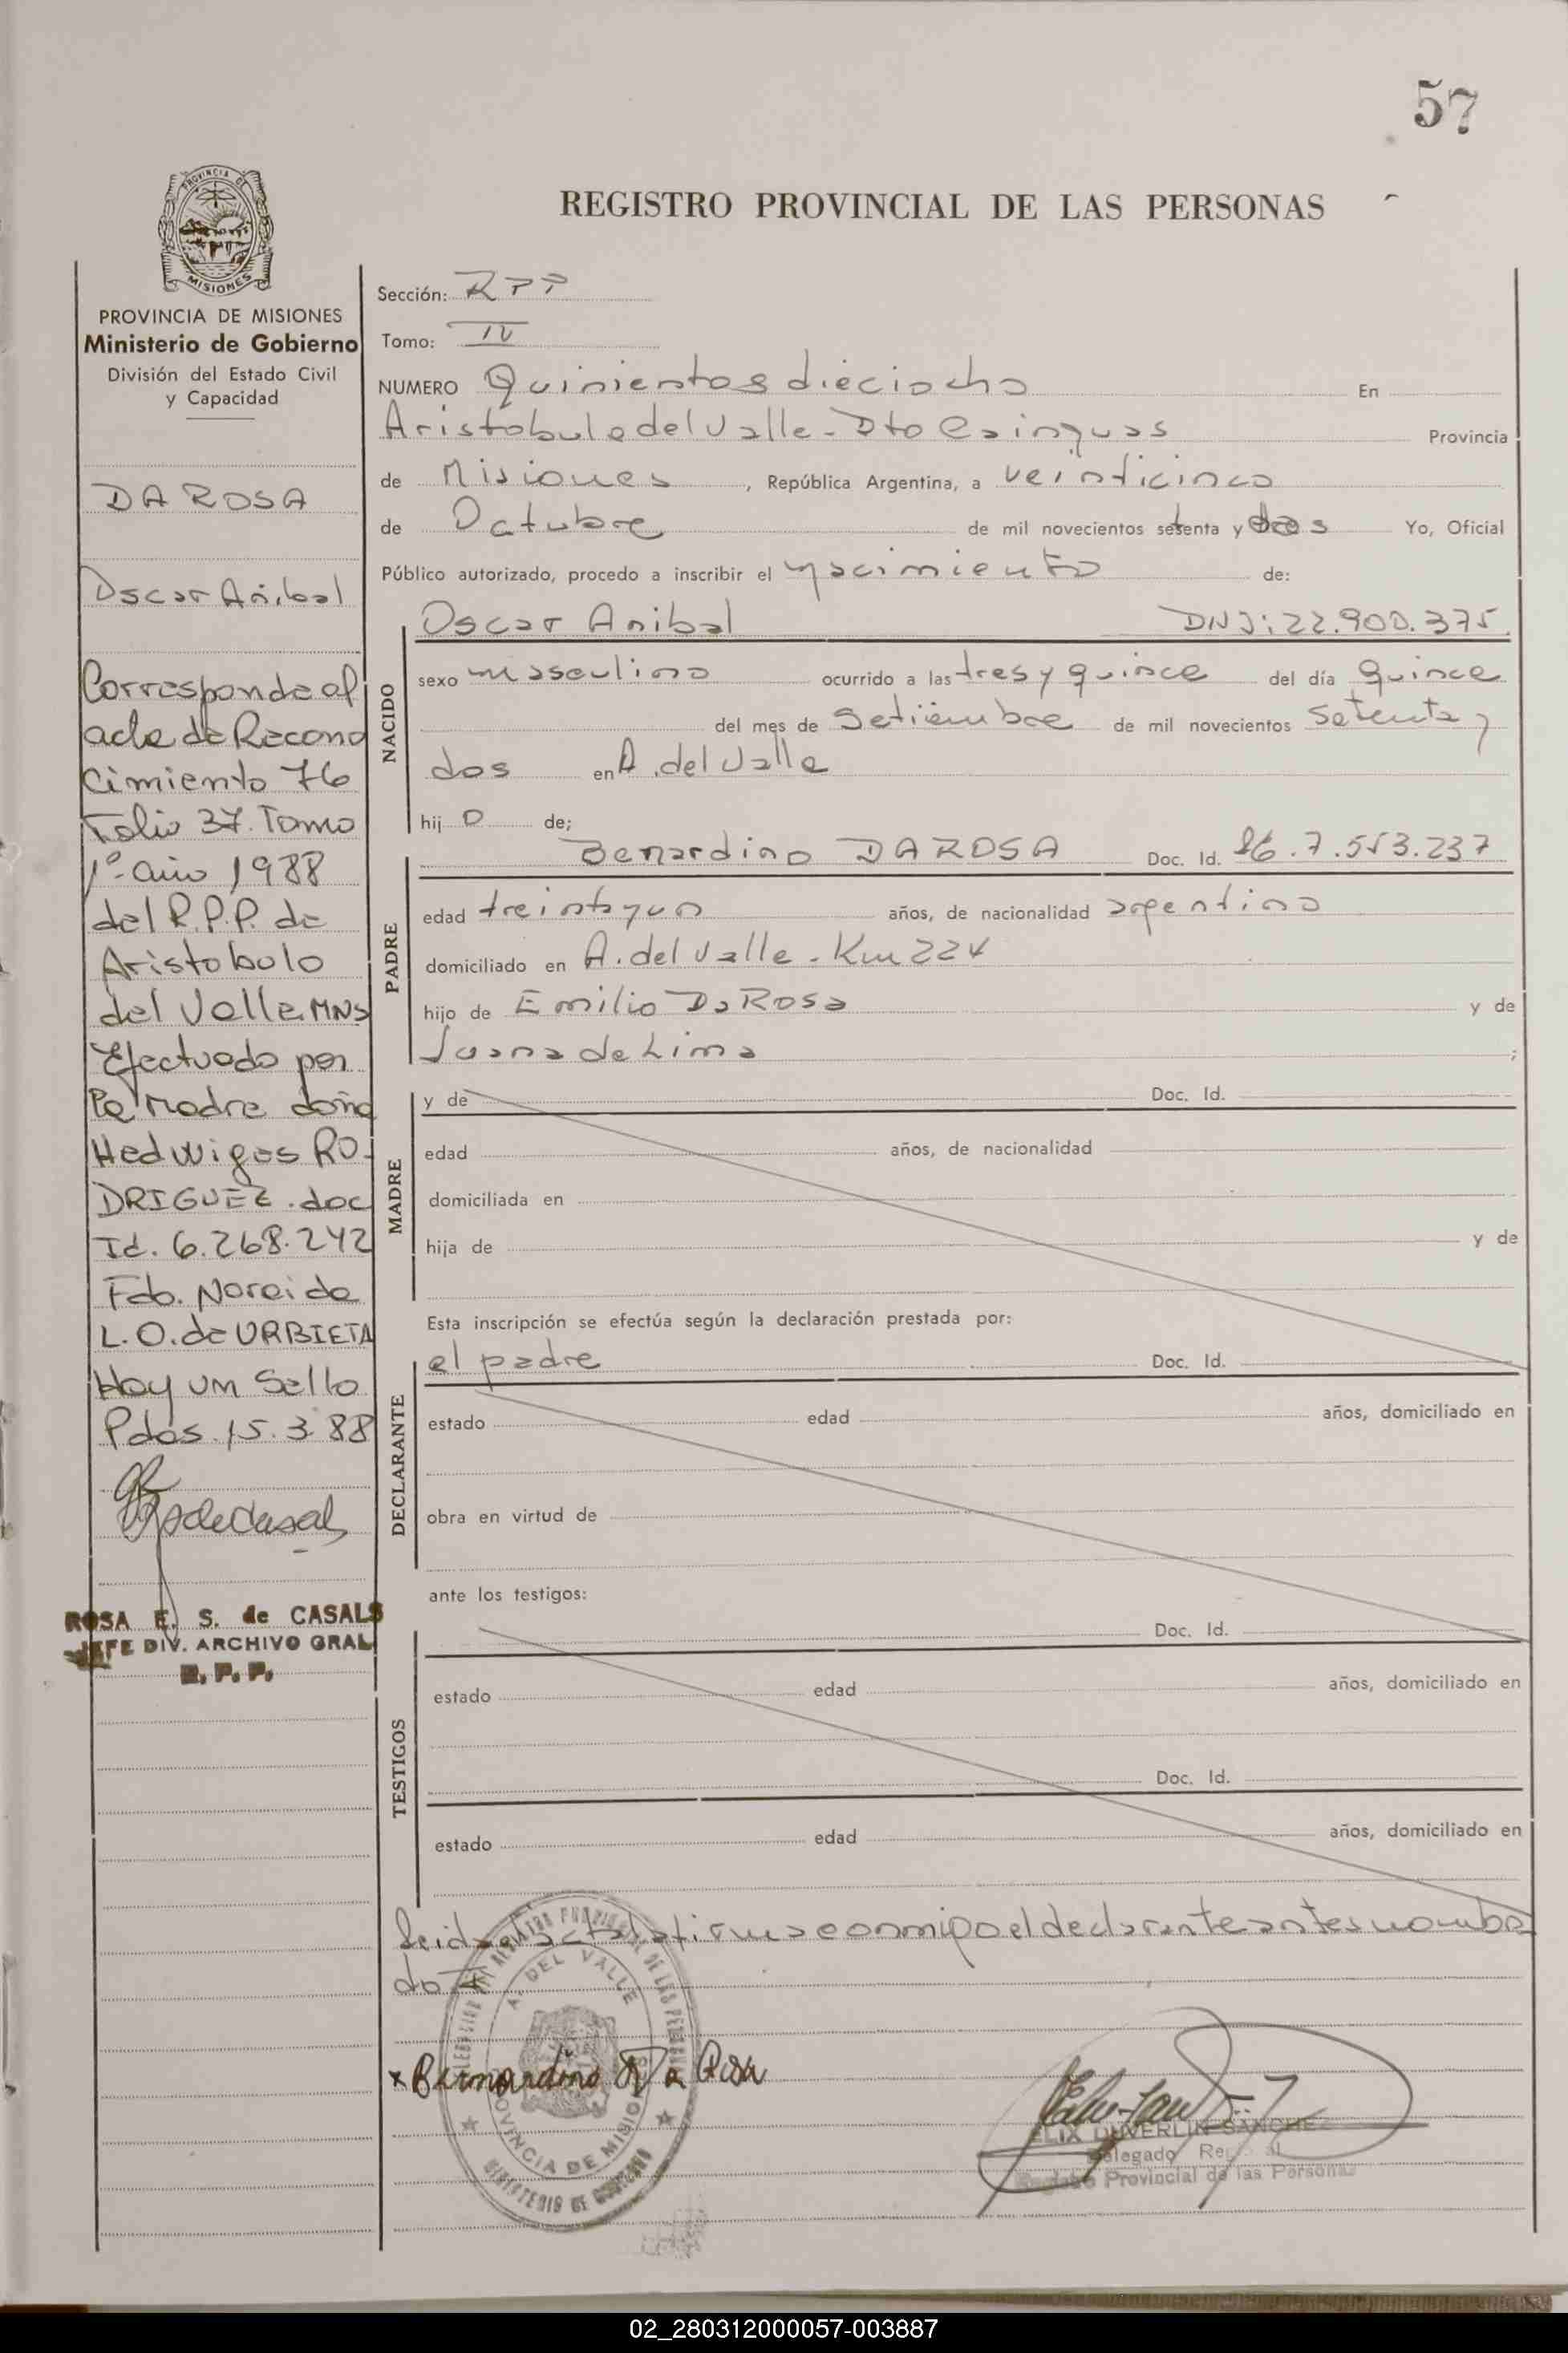 57
REGISTRO PROVINCIAL DE LAS PERSONAS
PROVINCIA DE MISIONES
PROVINCIA DE MISIONES
Ministerio de Gobierno
División del Estado Civil
y Capacidad
DA ROSA
Oscar Anibal
Corresponde al
acta de Recono
cimiento 76
Folio 37. Tomo
1º año 1988
del R.P.P. de
Aristobulo
del Valle. MNS
Efectuado por
la madre doña
Hedwiges RO-
DRIGUEZ . doc
Id. 6.268.242
Fdo. Noreida
L. O. de URBIETA
Hay un Sello
Pdas. 15.3.88
ROSA E. S. de CASALS
JEFE DIV. ARCHIVO GRAL
R. P. P.
Sección: RPP
Tomo: IV
NUMERO Quinientos dieciocho En
Aristobulo del Valle - Dto Cainguas Provincia
de Misiones , República Argentina, a veinticinco
de Octubre de mil novecientos setenta y dos Yo, Oficial
Público autorizado, procedo a inscribir el nacimiento de:
NACIDO
Oscar Anibal DNI: 22.900.375
sexo masculino ocurrido a las tres y quince del día quince
del mes de Setiembre de mil novecientos setenta y
dos en A. del Valle
hij o de;
PADRE
Benardino DA ROSA Doc. Id. 7.553.237
edad treinta y un años, de nacionalidad argentina
domiciliado en A. del Valle - Km 224
hijo de Emilio Da Rosa y de
Juana de Lima ;
MADRE
y de Doc. Id.
edad años, de nacionalidad
domiciliada en
hija de y de
Esta inscripción se efectúa según la declaración prestada por:
DECLARANTE
el padre Doc. Id.
estado edad años, domiciliado en
obra en virtud de
ante los testigos:
TESTIGOS
Doc. Id.
estado edad años, domiciliado en
Doc. Id.
estado edad años, domiciliado en
Leida el acta la firma conmigo el declarante antes nombra
do
A. DEL VALLE
PROVINCIA DE MISIONES
MINISTERIO DE GOBIERNO
x Bernardino Da Rosa
FELIX DUVERLIN SANCHEZ
Delegado
Provincial de las Personas
02_280312000057-003887